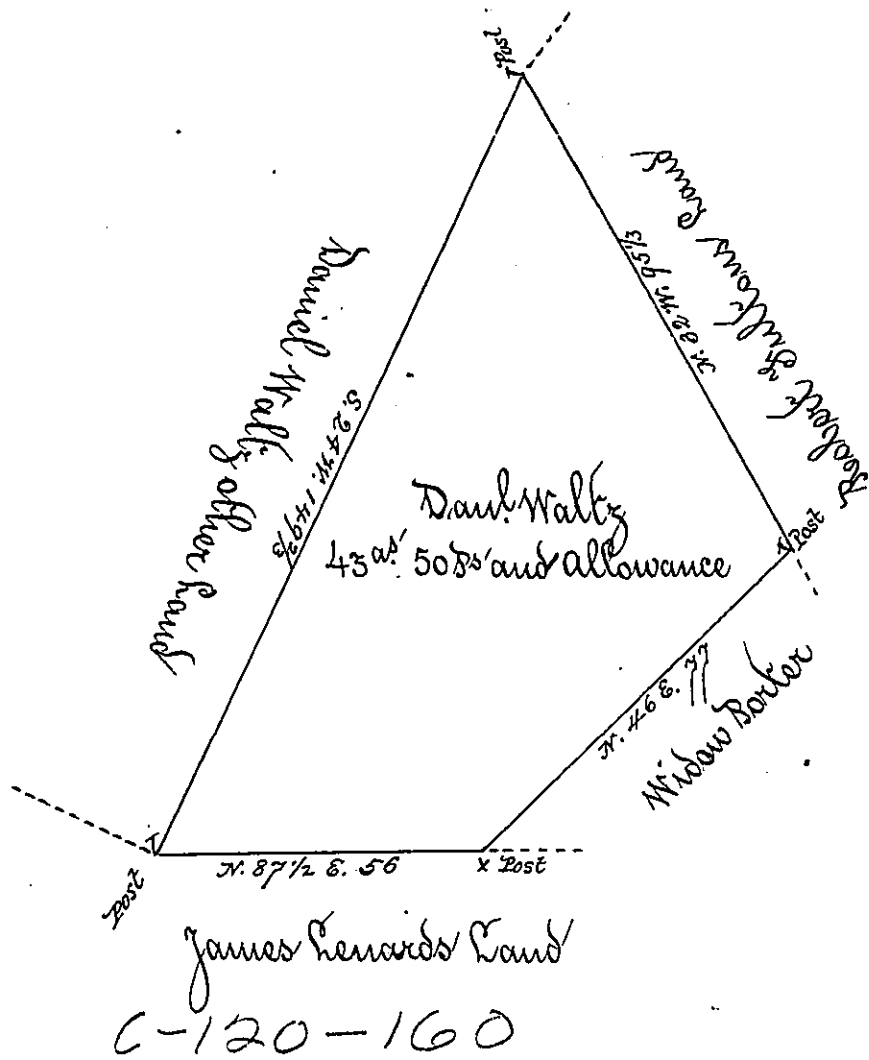 Post
Robert Fultons Land
N. 32 W. 95 1/3
Daniel Waltz other Land
S. 24 W. 149 2/3
Danl. Waltz
43 as. 50 ps and Allowance
Post
N. 46 E. 77
Widow Porter
Post
N. 87 1/2 E. 56
x Post
James Lenards Land
C-120-160